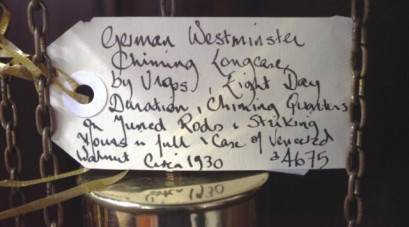 German Westminster
Chiming Longcase
by Urgos, Eight Day
Duration, Chiming Quarters
on Tuned Rods & Striking
Hours in full, Case of Veneered
Walnut Circa 1930 $4675
Circa 1930